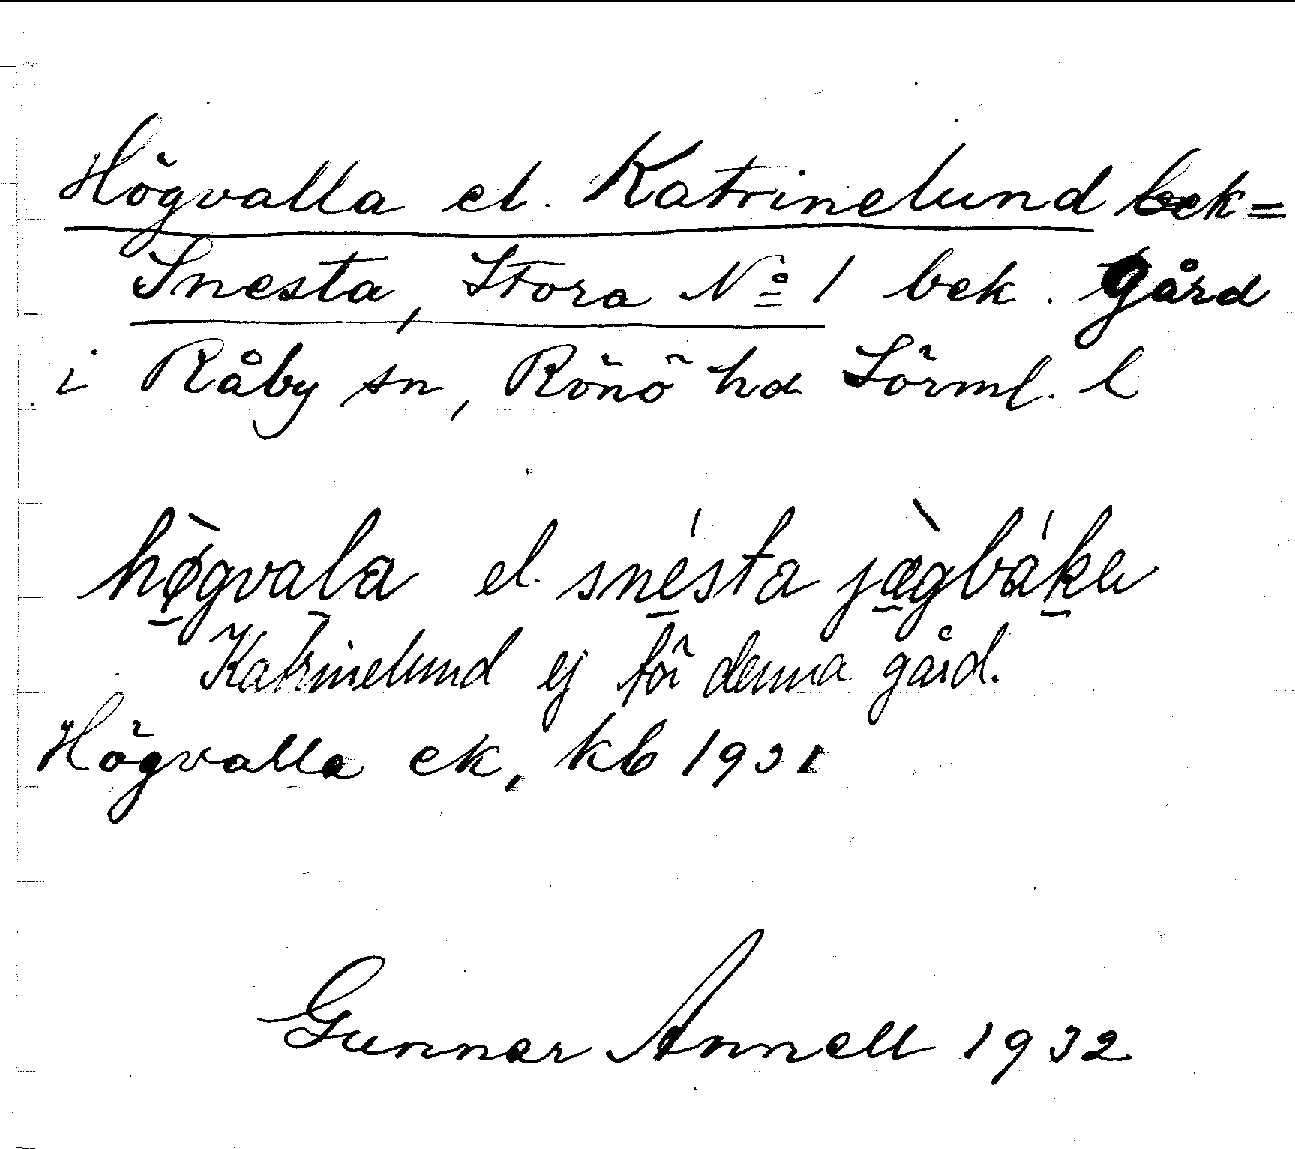 Högvalla el. Katrinelund bek=
Snesta, Stora No 1 bek. gård
i Råby sn, Rönö hd Sörml. l
hø̀gvala el. snésta jæ̀gbáka
Katrinelund ej för denna gård.
Högvalla ek, kb 1931
Gunnar Annell 1932